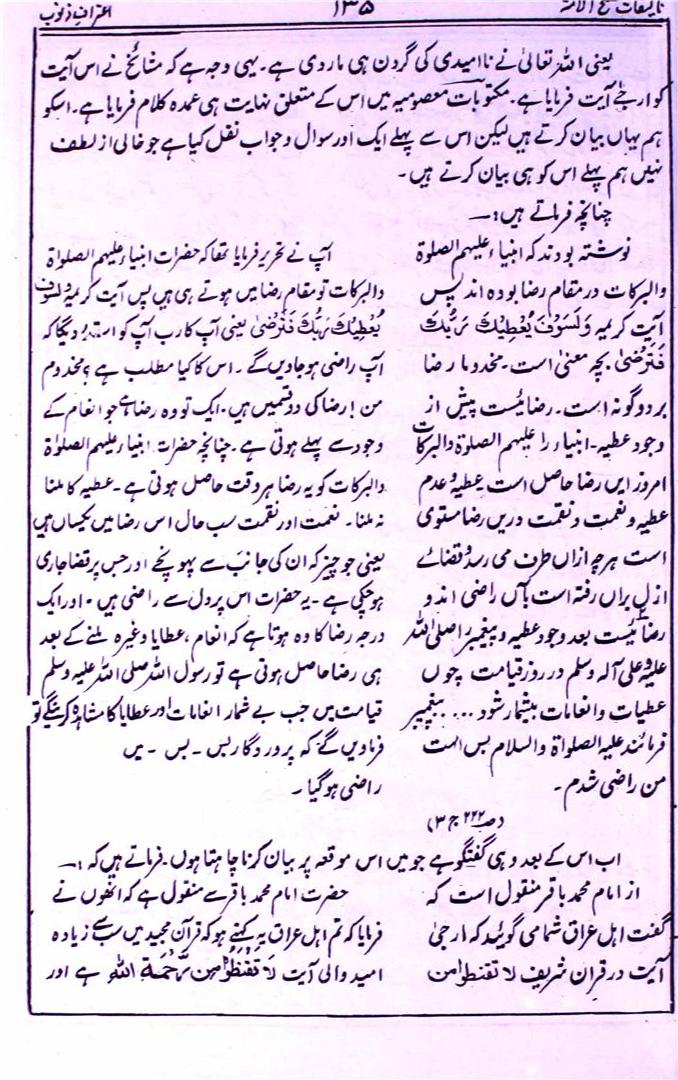 تالیفات مصلح الامۃ ۱۳۵ اعترافِ ذنوب
یعنی اللہ تعالیٰ نے ناامیدی کی گردن ہی مار دی ہے۔ یہی وجہ ہے کہ مشائخ نے اس آیت
کو ارجیٰ آیت فرمایا ہے۔ مکتوبات معصومیہ میں اس کے متعلق نہایت ہی عمدہ کلام فرمایا ہے۔ اسکو
ہم یہاں بیان کرتے ہیں لیکن اس سے پہلے ایک اور سوال و جواب نقل کیا ہے جو خالی از لطف
نہیں ہم پہلے اس کو ہی بیان کرتے ہیں۔
چنانچہ فرماتے ہیں:—
نوشتہ بودند کہ انبیاء علیہم الصلوٰۃ
والبرکات در مقام رضا بودہ اند پس
آیت کریمہ وَلَسَوْفَ یُعْطِیْكَ رَبُّكَ
فَتَرْضٰی بچہ معنیٰ است۔ مخدوما رضا
بر دو گونہ است۔ رضائیست پیش از
وجود عطیہ۔ انبیاء را علیہم الصلوۃ والبرکات
امروز ایں رضا حاصل است عطیہ و عدم
عطیہ و نعمت و نقمت دریں رضا مستوی
است ہرچہ ازاں طرف می رسد و قضائے
ازل براں رفتہ است بآں راضی اند و
رضائیست بعد وجود عطیہ و پیغمبر را صلی اللہ
علیہ وعلی آلہ وسلم در روز قیامت چوں
عطیات و انعامات بیشمار شود .... پیغمبر
فرمائند علیہ الصلواۃ والسلام بس است
من راضی شدم۔
آپ نے تحریر فرمایا تھا کہ حضرات انبیاء علیہم الصلواۃ
والبرکات تو مقام رضا میں ہوتے ہی ہیں پس آیت کریمہ ولسوف
یُعْطِیْكَ رَبُّكَ فَتَرْضٰی یعنی آپ کا رب آپ کو استدر دیگا کہ
آپ راضی ہو جاویں گے۔ اس کا کیا مطلب ہے ؟ مخدوم
من! رضا کی دو قسمیں ہیں۔ ایک تو وہ رضا ہے جو انعام کے
وجود سے پہلے ہوتی ہے۔ چنانچہ حضرات انبیاء علیہم الصلواۃ
والبرکات کو یہ رضا ہر وقت حاصل ہوتی ہے۔ عطیہ کا ملنا
نہ ملنا۔ نعمت اور نقمت سب حال اس رضا میں یکساں ہیں
یعنی جو چیز کہ ان کی جانب سے پہونچے اور جس پر قضا جاری
ہو چکی ہے۔ یہ حضرات اس پر دل سے راضی ہیں۔ اور ایک
درجہ رضا کا وہ ہوتا ہے کہ انعام، عطایا وغیرہ ملنے کے بعد
ہی رضا حاصل ہوتی ہے تو رسول اللہ صلی اللہ علیہ وسلم
قیامت میں جب بے شمار انعامات اور عطایا کا مشاہدہ کرینگے تو
فرماویں گے کہ پروردگار بس۔ بس۔ میں
راضی ہو گیا۔
(صـ۲۲۲ ج ۳)
اب اس کے بعد وہی گفتگو ہے جو میں اس موقعہ پر بیان کرنا چاہتا ہوں۔ فرماتے ہیں کہ:—
از امام محمد باقر منقول است کہ
گفت اہل عراق شما می گوئید کہ ارجیٰ
آیت در قرآن شریف لا تقنطوا من
حضرت امام محمد باقر سے منقول ہے کہ انھوں نے
فرمایا کہ تم اہل عراق یہ کہتے ہو کہ قرآن مجید میں سب سے زیادہ
امید والی آیت لَا تَقْنَطُوْا مِن رَّحْمَةِ اللہِ ہے اور